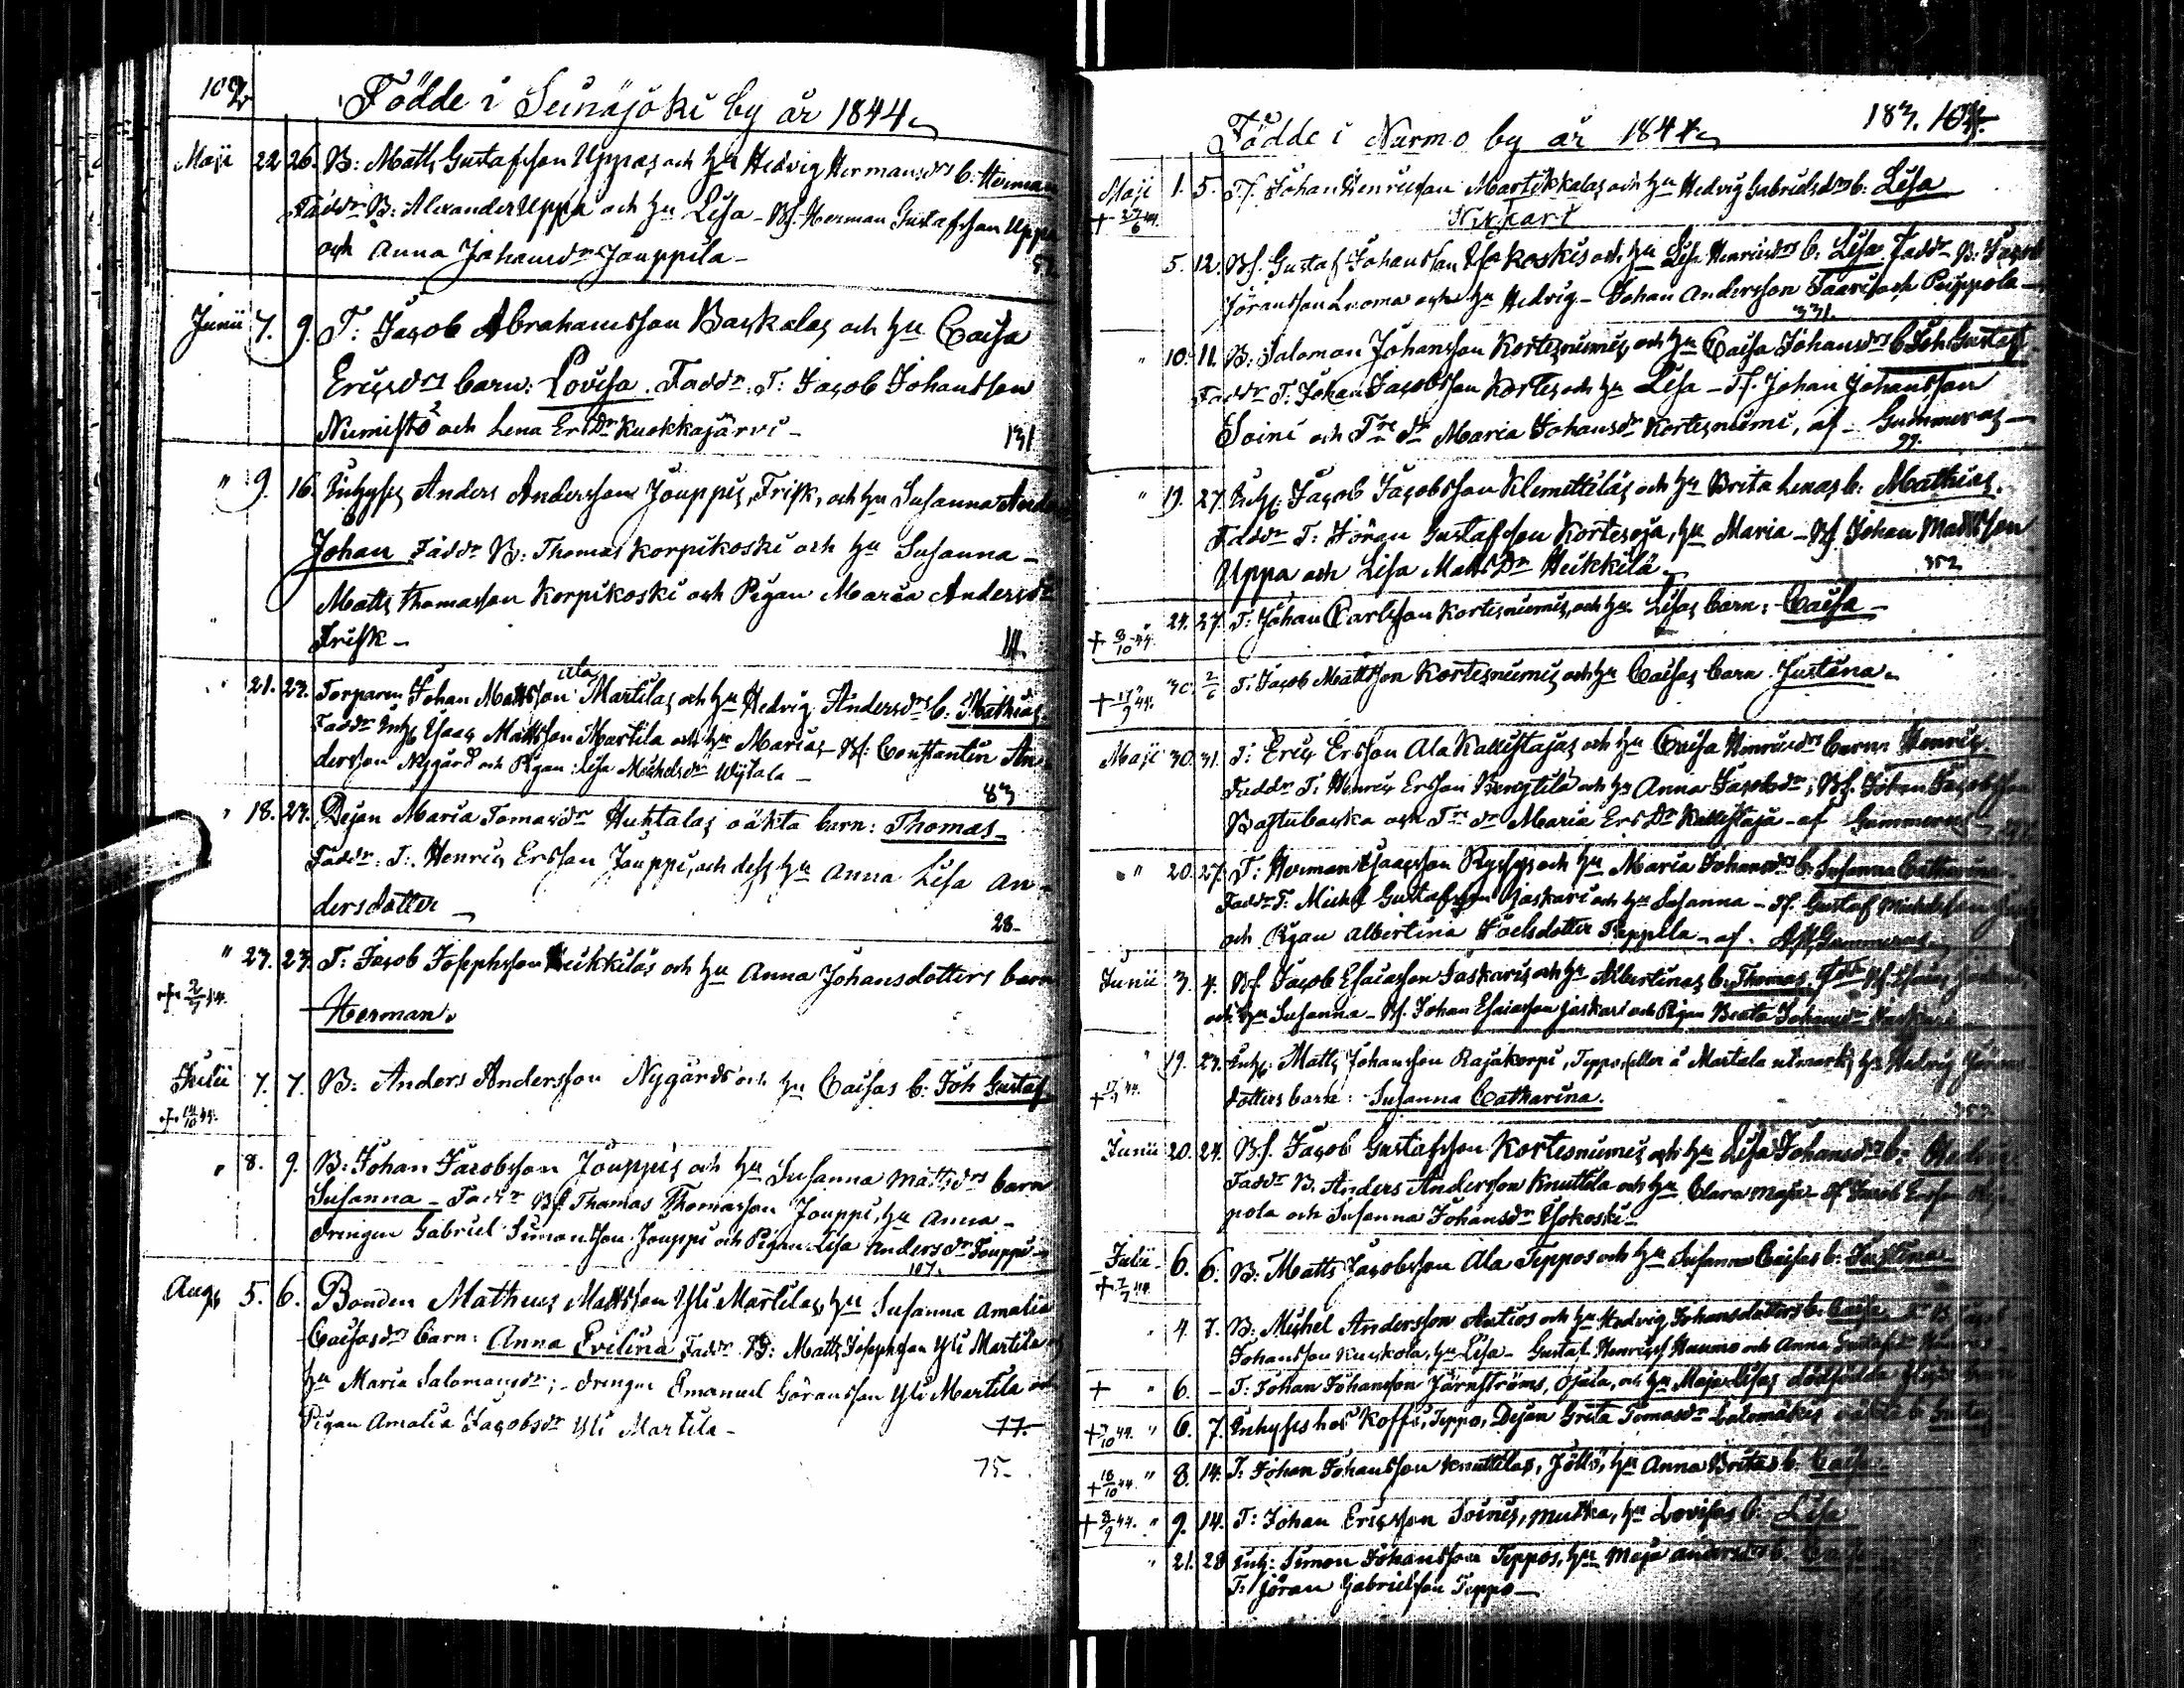 102
Födde i Seinäjoki by år 1844.
Maji 22 26. B: Matts Gustafsson Uppas och hu Hedvig Hermansdrs b: Herman
Faddr B: Alexander Uppa och hu Lisa - Bs. Herman Gustafsson Uppa
och Anna Johansdr Jouppila -
Junii 7. 9. T: Jacob Abrahamsson Backalas och hu Caisa
Ericsdrs barn: Lovisa. Faddr: T: Jacob Johansson
Niemistö och Lena Ersdr Kuokkajärvi -
131
" 9. 16. Inhyses Anders Andersson Jouppis, Frisk, och hu Susanna
Johan Faddr B: Thomas Korpikoski och hu Susanna -
Matts Thomasson Korpikoski och Pigan Maria Andersdr
Frisk -
21. 23. Torparen Johan Mattsson Ala Martilas och hu Hedvig Andersdrs b: Mathias
Faddr Inhs Isaac Mattsson Martila och hu Maria, - Bs: Constantin An-
dersson Nygård och Pigan: Lisa Michelsdr Wijtala -
83
" 18. 23. Dejan Maria Tomasdr Huhtalas oäkta barn: Thomas -
Faddr: T: Henric Ersson Jouppi, och dess hu Anna Lisa An-
dersdotter -
28 -
" 23. 23. T: Jacob Josephsson Heikkiläs och hu Anna Johansdotters barn
+ 2/7 44.
Herman.
Julii 7. 7. B: Anders Andersson Nygårds och hu Caisas b: Joh Gustaf
+ 14/10 44.
" 8. 9. B: Johan Jacobsson Jouppis och hu Susanna Mattsdrs barn
Susanna - Faddr Bs Thomas Thomasson Jouppi, hu Anna -
Drengen Gabriel Simonsson Jouppi och Pigan Lisa Andersdr Jouppi -
107.
Aug. 5. 6. Bonden Mathias Mattsson Yli Martilas, hu Susanna Amalia
Caisasdrs barn: Anna Evelina, Faddr B: Matts Josephsson Yli Martila
hu Maria Salomonsdr; - Drengen Emanuel Göransson Yli Martila och
Pigan Amalia Jacobsdr Yli Martila -
77 -
75 -
Födde i Nurmo by år 1844.
183. 104
Maji 1. 5. Ts. Johan Henricsson Martikkalas och hu Hedvig Gabrielsdrs b: Lisa
+ 27/6 44.
5. 12. Bs. Gustaf Johansson Ylakoskis och hu Lisa Henricsdrs b: Lisa Faddr B: Jacob
Göransson Luoma och hu Hedvig - Johan Andersson Saari och Peippola -
331.
" 10. 11. B: Salomon Johansson Kortesniemis och hu Caisa Johansdrs b Joh Gustaf
Faddr T: Johan Jacobsson Kortes och hu Lisa - Ts. Johan Johansson
Soini och Maria Johansdr Kortesniemi, af - Gummerus -
99.
" 19. 27. Inhs: Jacob Jacobsson Klemettiläs och hu Brita Lenas b: Mathias.
Faddr T: Jöran Gustafsson Kortesoja, hu Maria - Bs Johan Mattsson
Uppa och Lisa Mattsdr Heikkilä.
352
" 24. 27. T: Johan Carlsson Kortesniemis, och hu Lisas barn: Caisa -
+ 3/10 44.
30. 2/6 T. Jacob Mattsson Kortesniemis och hu Caisas barn Justina.
+ 17/9 44.
Maji 30. 31. T: Eric Ersson Ala Kallistajas och hu Caisa Henricsdrs barn Henric
Faddr T. Henric Ersson Bengtilä och hu Anna Jacobsdr; Bs. Johan Jacobsson
och Maria Ersdr Kallistaja - af Gummerus -
" 20. 27. T: Herman Isaacsson och hu Maria Johansdrs b: Susanna Catharina -
Faddr T: Michel Gustafsson Jaskari och hu Susanna - Gustaf Michelsson
och Pigan Albertina Joelsdotter Peippola - af Gummerus
Junii 3. 4. Bs Jacob Esaiasson Jaskaris och hu Albertinas b. Thomas
och hu Susanna - Bs. Johan Esaiasson Jaskari och Pigan Beata Johansdr
" 19. 23. Inhs: Matts Johansson Rajakorpi, Teppos, eller å Martala utmark, hu Hedvig
+ 17/7 44.
dotters barn: Susanna Catharina.
Junii 20. 24. Bs. Jacob Gustafsson Kortesniemis och hu Lisa Johansdrs b: Hedvig
Faddr B. Anders Andersson Knuttila och hu Clara Maja - Jacob Ersson
pola och Susanna Johansdr Ylikoski -
Julii 6. 6. B: Matts Jacobsson Ala Teppos och hu Susanna Caisas b: Justina
+ 7/7 44.
" 4. 7. B: Michel Andersson Antios och hu Hedvig Johansdotters b: Caisa
Johansson Kuckola, hu Lisa - Gustaf Henricss Haumo och Anna Gustafsdr
+ " 6. - T: Johan Johansson Järnströms, Ojala, och hu Maja Lisas dödfödda
+ 7/10 44. " 6. 7. Inhyses hos Koffi, Teppo, Dejan Greta Tomasdr oäkta b Gustaf
+ 18/10 44. " 8. 14. T: Johan Johansson Knuttilas, hu Anna Britas b Caisa
+ 8/9 44. " 9. 14. T: Johan Ericsson Soinis, Mutka, hu Lovisas b: Lisa
" 21. 28 Inh: Simon Johansson Teppos, hu Maja Andersdrs
T: Jöran Gabrielsson Teppo -